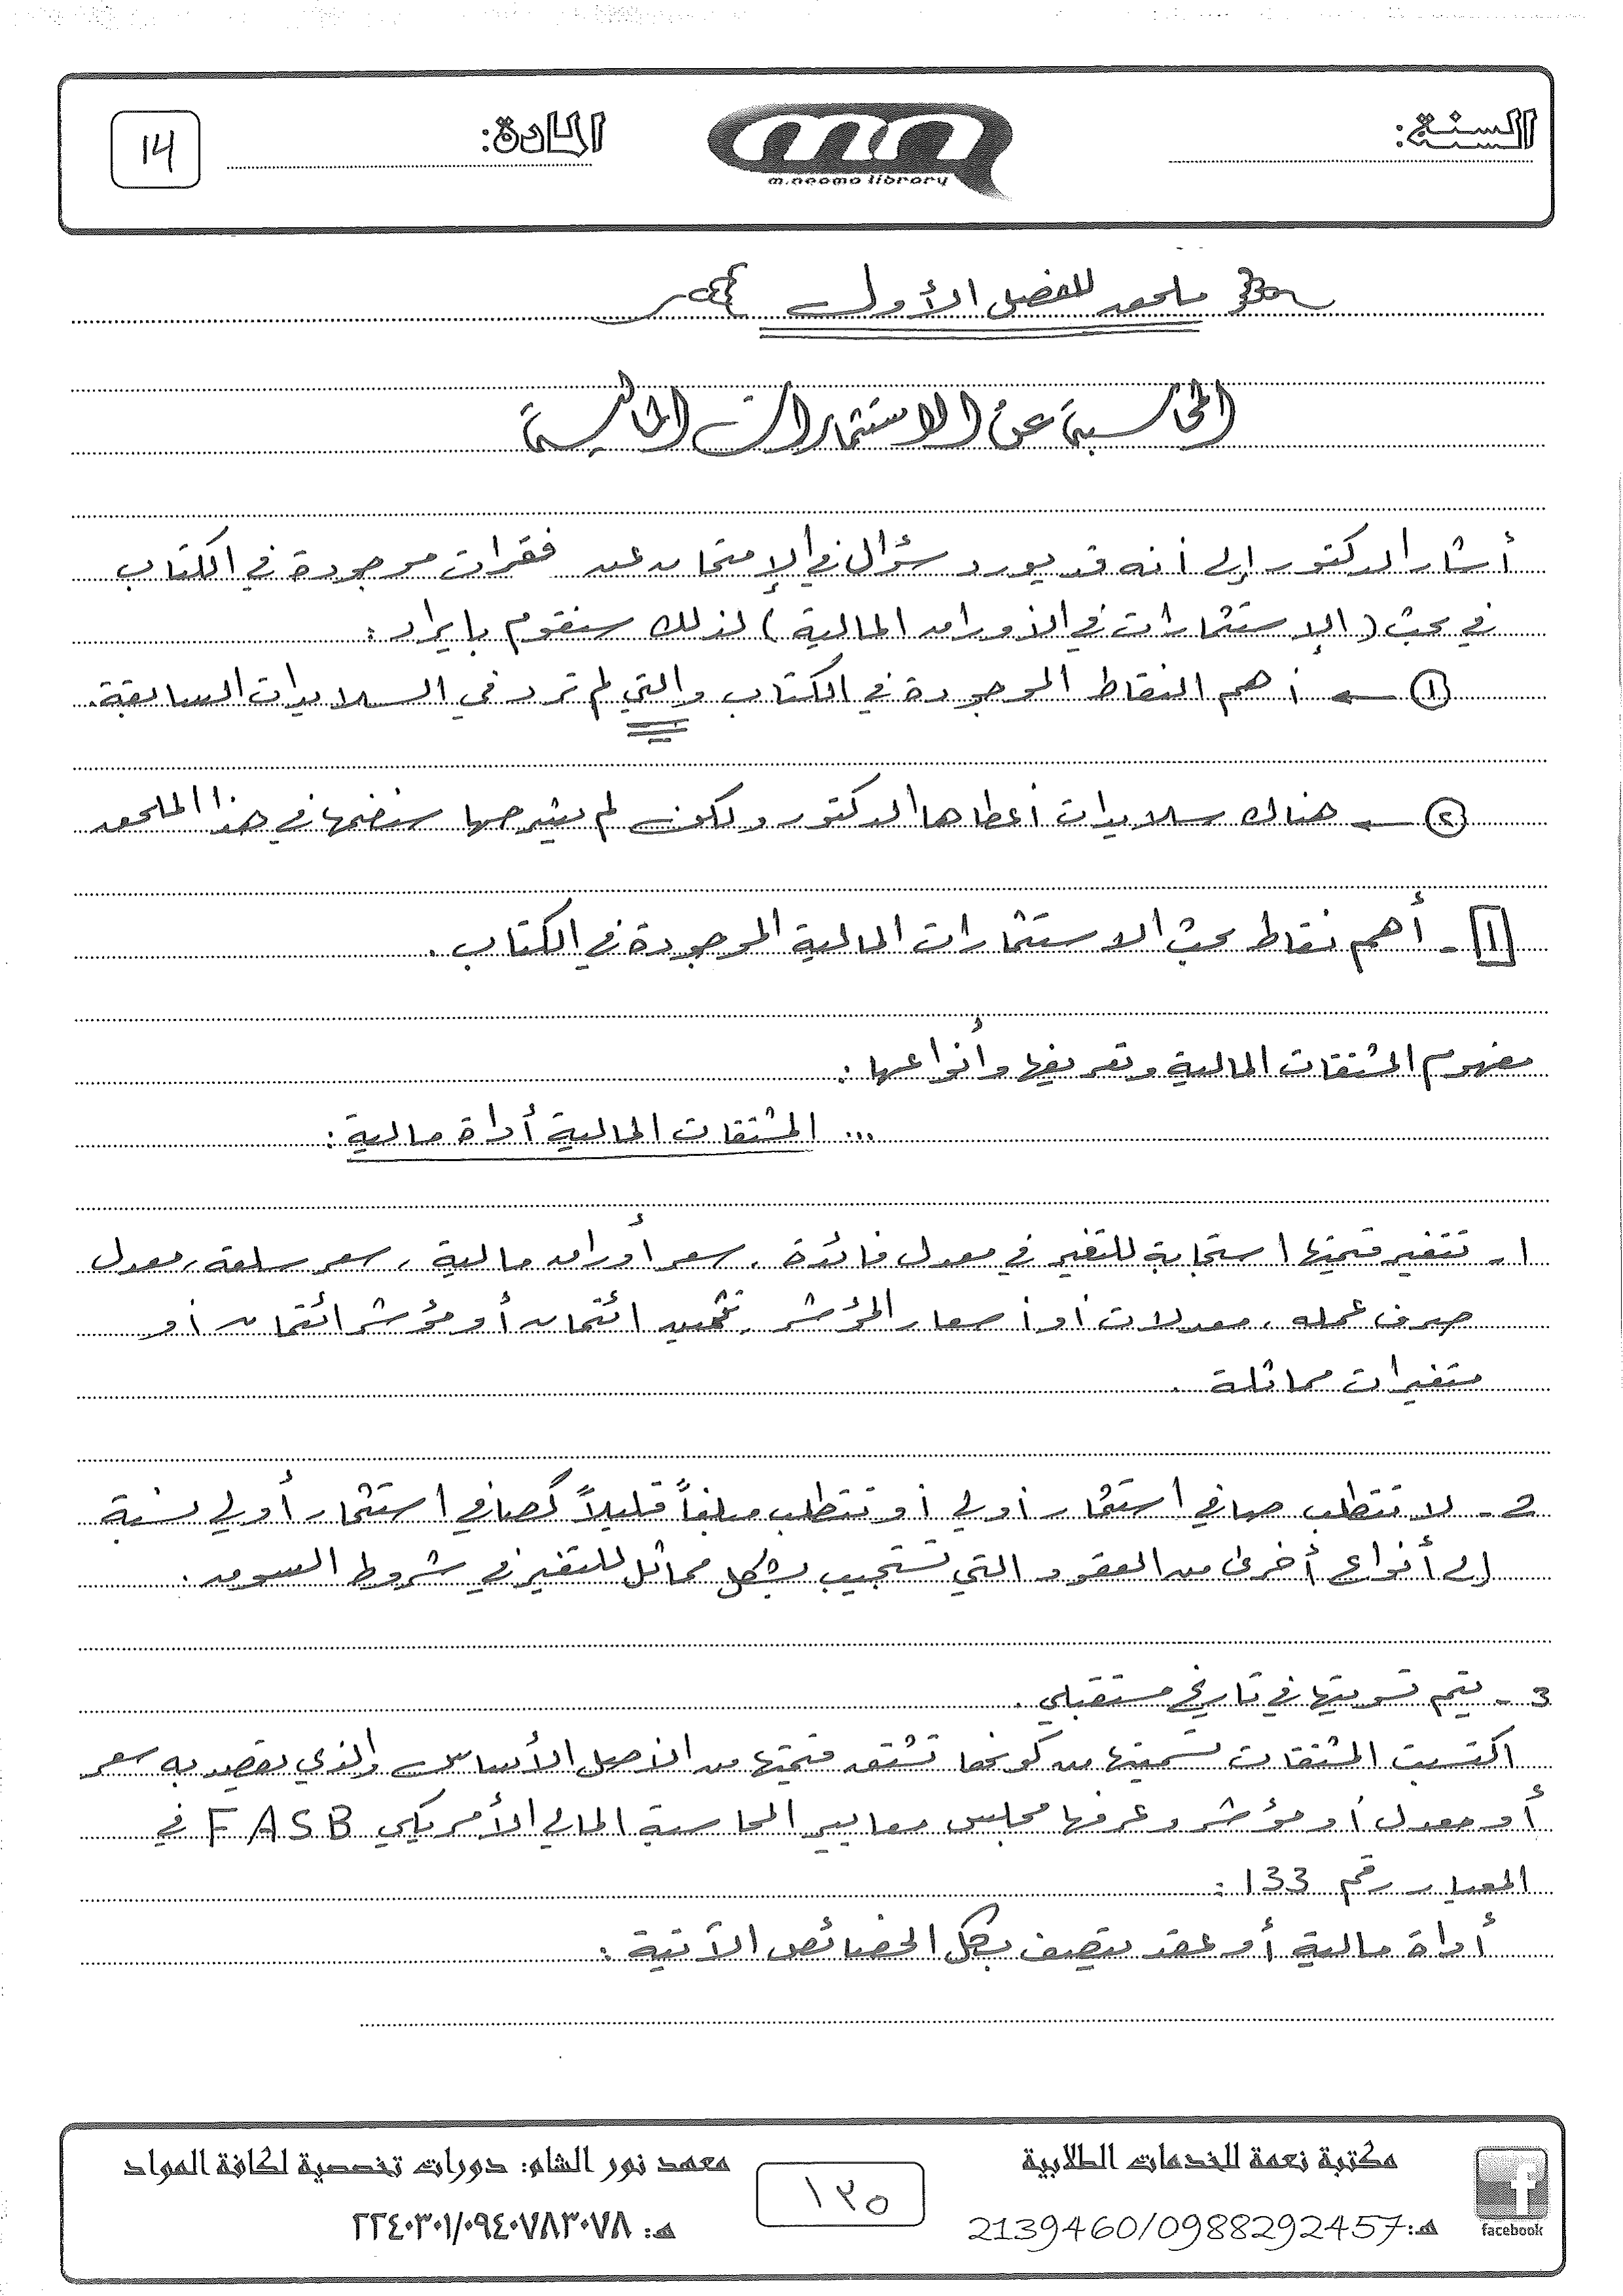 السنة:
m.neama library
المادة:
14
ملحق للفصل الأول
المحاسبة عن الاستثمارات المالية
أشار الدكتور إلى أنه قد يورد سؤال في الإمتحان عن فقرات موجودة في الكتاب
في بحث (الإستثمارات في الأوراق المالية) لذلك سنقوم بايراد:
① ← أهم النقاط الموجودة في الكتاب والتي لم ترد في السلايدات السابقة.
② ← هناك سلايدات أعطاها الدكتور ولكن لم يشرحها سنضمها في هذا الملحق
1 - أهم نقاط بحث الاستثمارات المالية الموجودة في الكتاب.
مفهوم المشتقات المالية وتعريفها وأنواعها:
... المشتقات المالية أداة مالية:
1- تتغير قيمتها استجابة للتغير في معدل فائدة، سعر أوراق مالية، سعر سلعة، معدل
صرف عمله، معدلات أو أسعار المؤشر، تخمين ائتمان أو مؤشر ائتمان أو
متغيرات مماثلة.
2- لا تتطلب صافي استثمار أولي أو تتطلب مبلغاً قليلاً كصافي استثمار أولي نسبة
إلى أنواع أخرى من العقود التي تستجيب بشكل مماثل للتغير في شروط السوق.
3- يتم تسويتها في تاريخ مستقبلي.
اكتسبت المشتقات تسميتها من كونها تشتق قيمتها من الأصل الأساسي والذي يقصد به سعر
أو معدل أو مؤشر وعرفها مجلس معايير المحاسبة المالي الأمريكي FASB في
المعيار رقم 133:
أداة مالية أو عقد يتصف بكل الخصائص الآتية:
مكتبة نعمة للخدمات الطلابية
هـ: 2139460/0988292457
facebook
١٢٥
معهد نور الشام: دورات تخصصية لكافة المواد
هـ: ٢٢٤٠٣٠١/٠٩٤٠٧٨٣٠٧٨